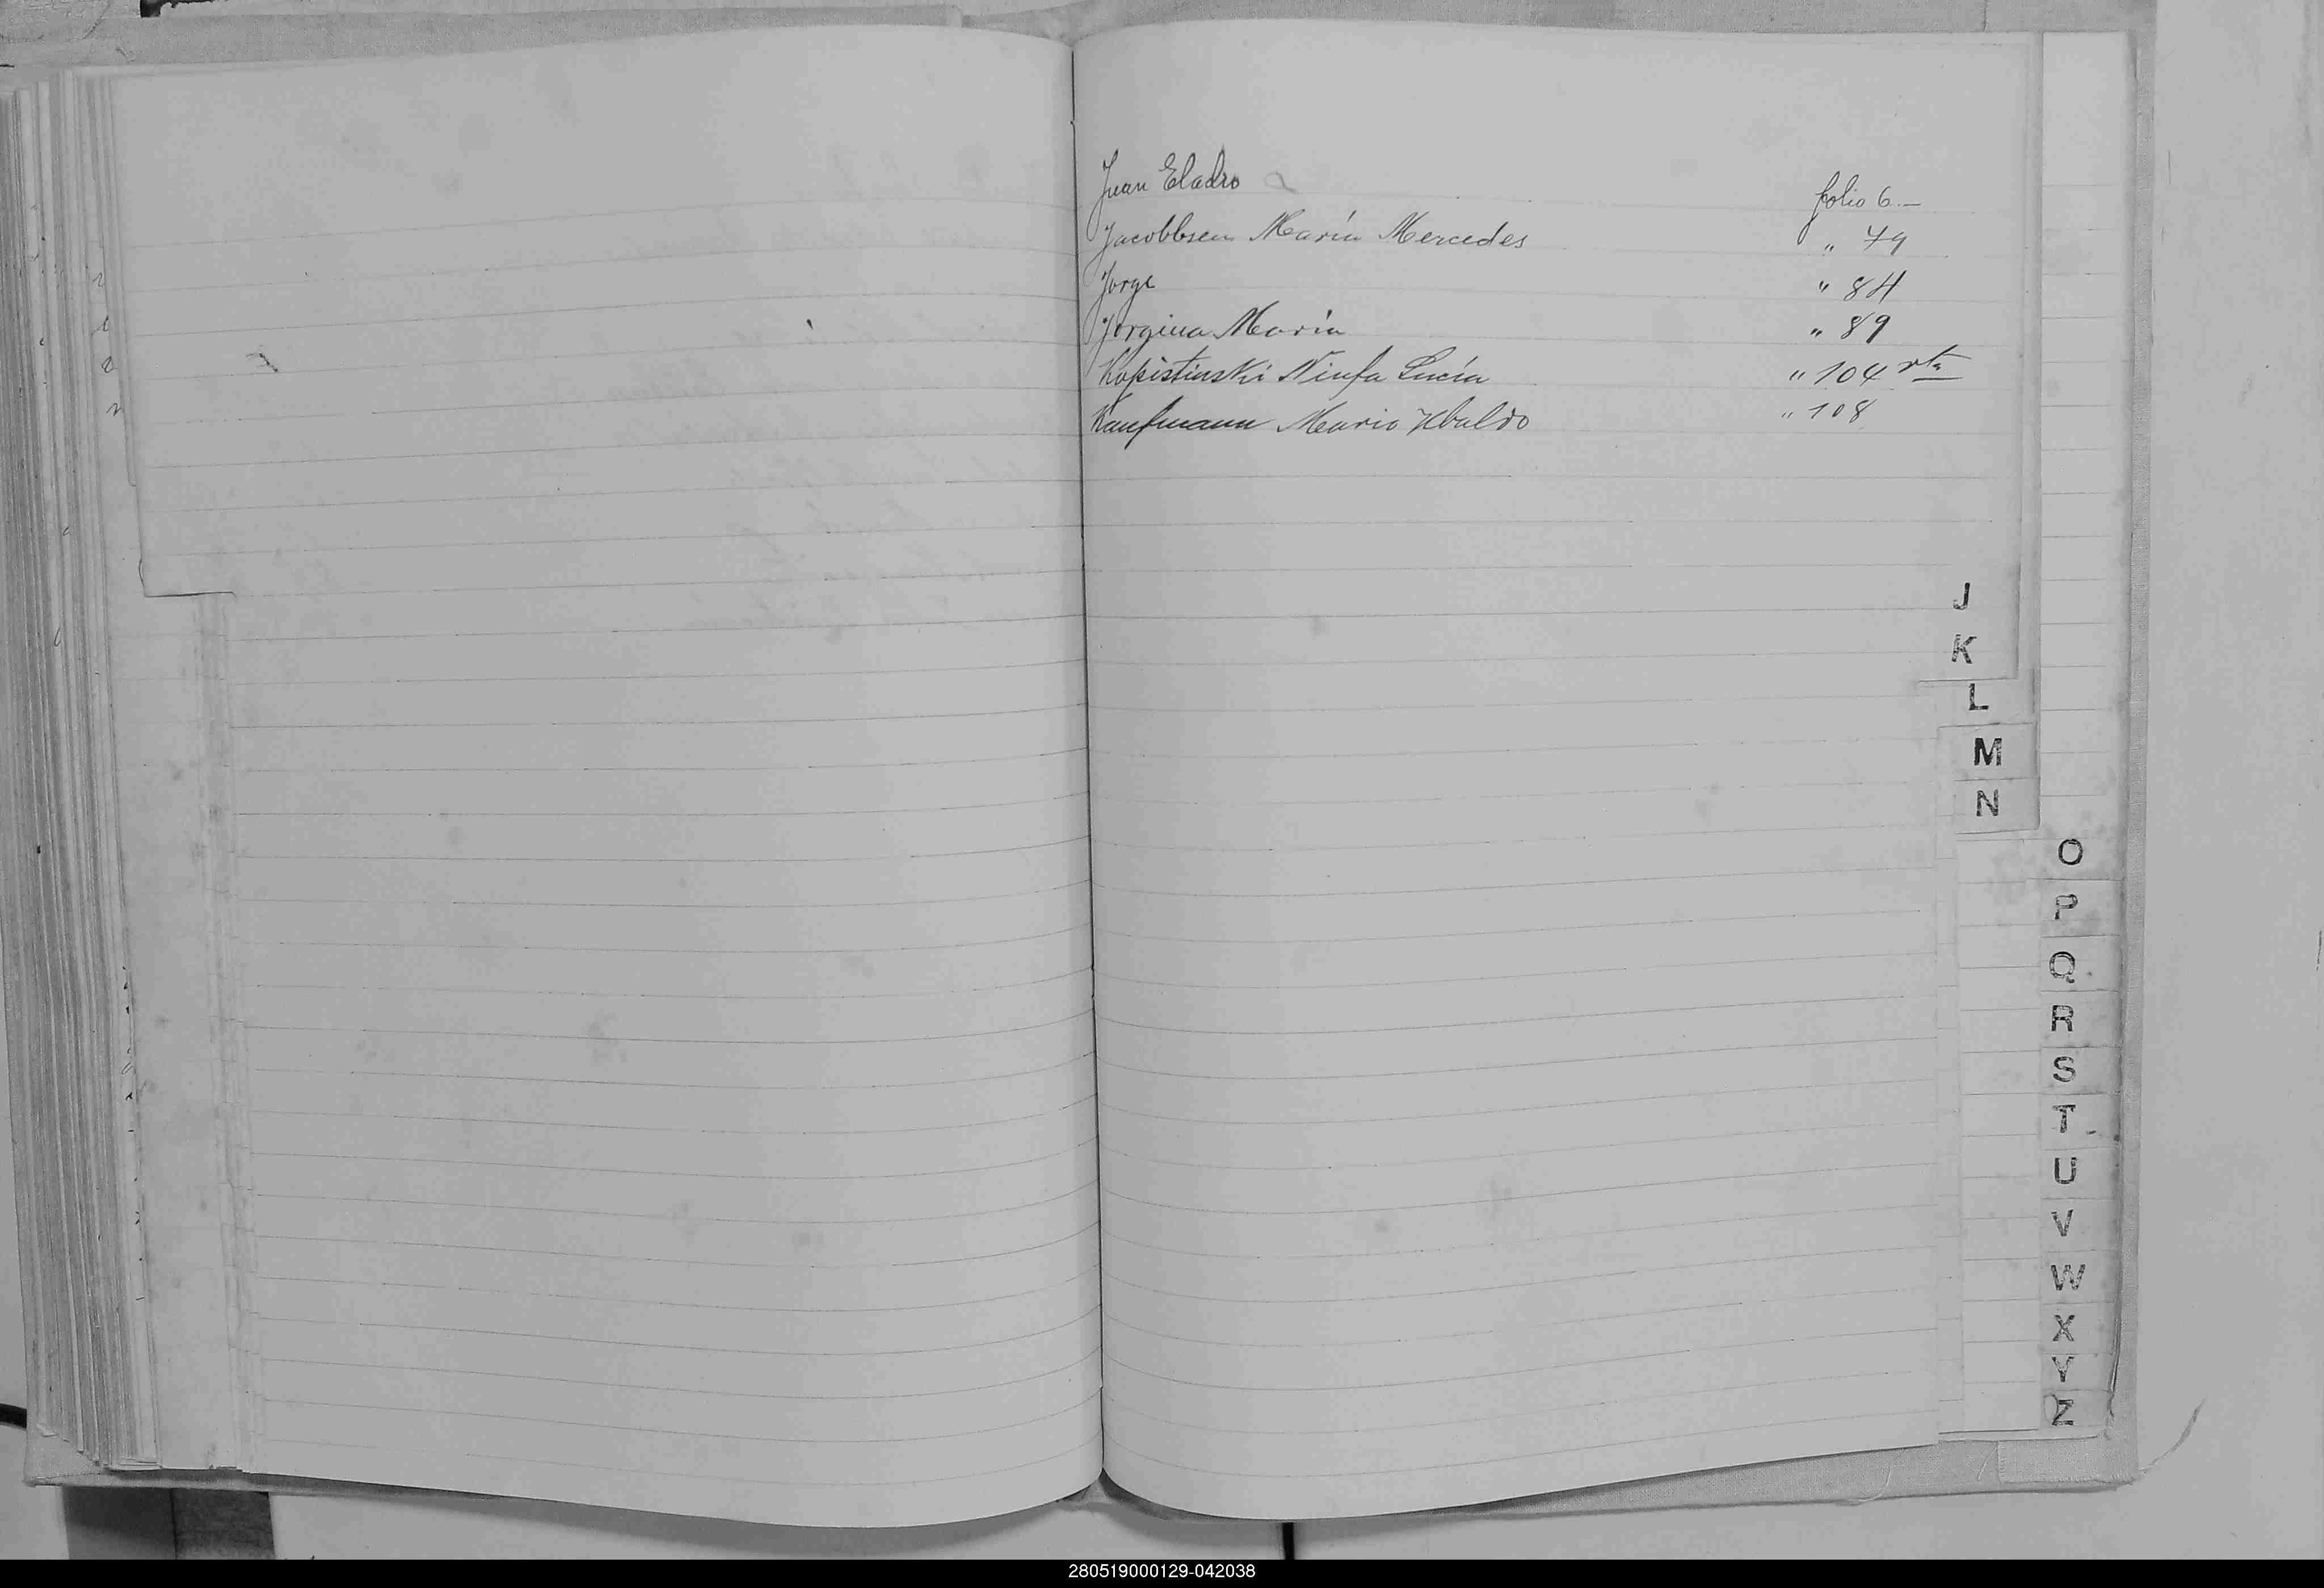 Juan Eladio folio 6.—
Jacobbsen María Mercedes " 79
Jorge " 84
Jorgina María " 89
Kopistinski Ninfa Lucía " 104 vta
Kaufmann Mario Ubaldo " 108
J
K
L
M
N
O
P
Q
R
S
T
U
V
W
X
Y
Z
280519000129-042038